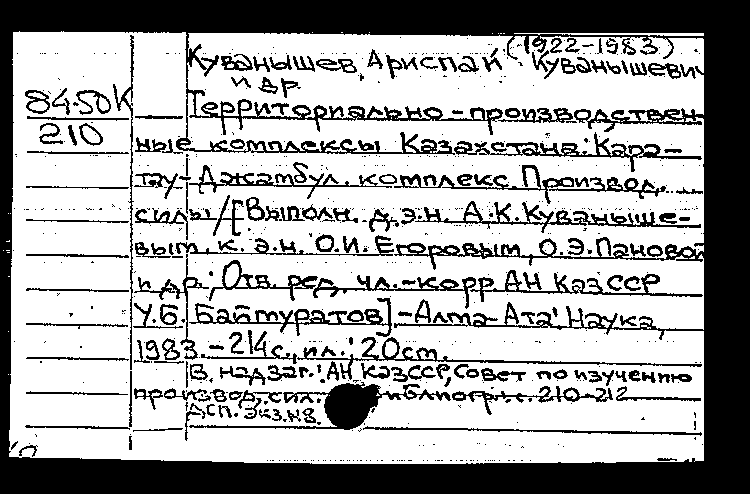 (1922-1983)
Куванышев, Ариспай Куванышевич
и др.
84-50К Территориально-производствен-
210 ные комплексы Казахстана: Кара-
тау-Джамбул. комплекс. Производ.
силы/[Выполн. д.э.н. А.К.Куваныше-
вым, к.э.н. О.И.Егоровым, О.Э.Пановой
и др.; Отв. ред. чл.-корр. АН КазССР
У.Б. Баймуратов].-Алма-Ата: Наука,
1983.-214с., ил.; 20см.
В надзаг.: АН КазССР, Совет по изучению
производ. сил. иблиогр.: с. 210-212
ДСП. Экз.№8.